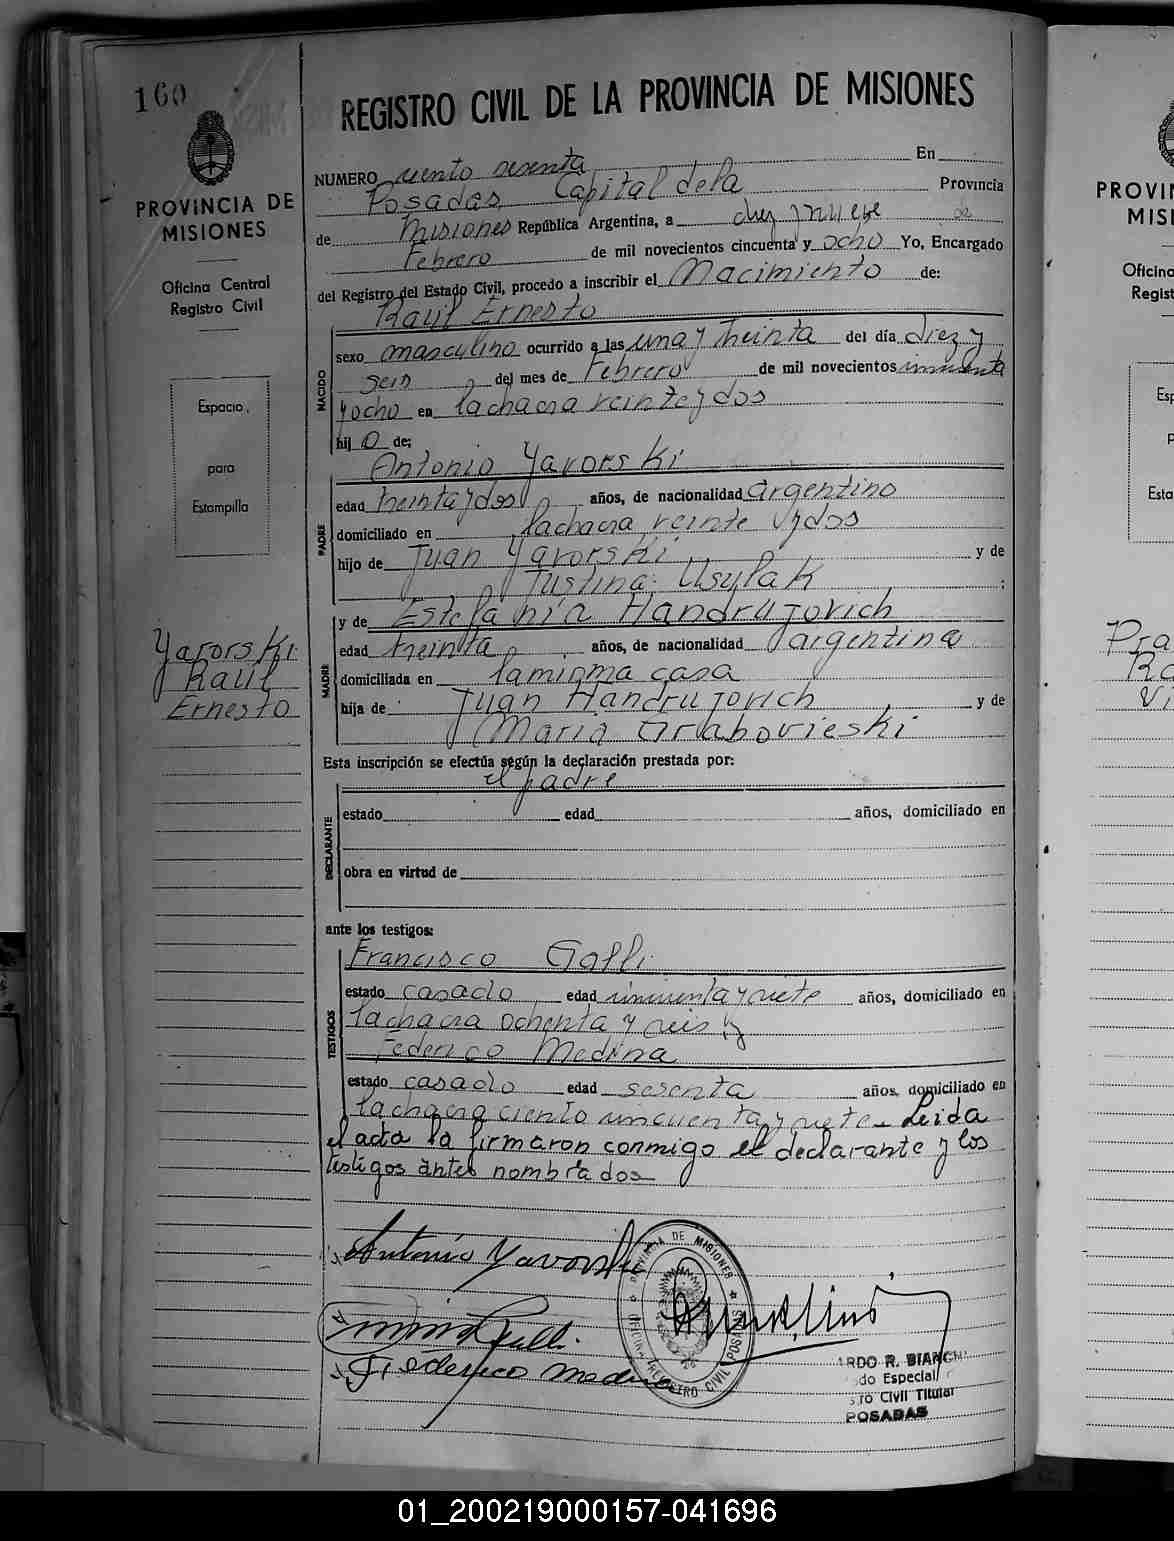 160
PROVINCIA DE
MISIONES
Oficina Central
Registro Civil
Espacio
para
Estampilla
Yavorski
Raúl
Ernesto
REGISTRO CIVIL DE LA PROVINCIA DE MISIONES
NUMERO ciento sesenta En
Posadas Capital de la Provincia
de Misiones República Argentina, a diez y nueve de
Febrero de mil novecientos cincuenta y ocho Yo, Encargado
del Registro del Estado Civil, procedo a inscribir el Nacimiento de:
Raúl Ernesto
NACIDO
sexo masculino ocurrido a las una y treinta del día diez y
seis del mes de Febrero de mil novecientos cincuenta
y ocho en la chacra veinte y dos
hij o de;
Antonio Yavorski
PADRE
edad treinta y dos años, de nacionalidad argentino
domiciliado en la chacra veinte y dos
hijo de Juan Yavorski y de
Justina Usylak ;
MADRE
y de Estefanía Handrujovich
edad treinta años, de nacionalidad argentina
domiciliada en la misma casa
hija de Juan Handrujovich y de
María Grabovieski
Esta inscripción se efectúa según la declaración prestada por:
el padre
DECLARANTE
estado edad años, domiciliado en
obra en virtud de
ante los testigos:
TESTIGOS
Francisco Galli
estado casado edad cincuenta y siete años, domiciliado en
la chacra ochenta y seis y
Federico Medina
estado casado edad sesenta años, domiciliado en
la chacra ciento cincuenta y siete Leida
el acta la firmaron conmigo el declarante y los
testigos antes nombrados
Antonio Yavorski
Galli
Federico Medina
PROVINCIA DE MISIONES
REGISTRO CIVIL POSADAS
ARDO R. BIANCHI
do Especial
ro Civil Titular
POSADAS
PROVIN
MISI
Oficina
Regist
Esp
P
Esta
Pra
Ra
Vi
01_200219000157-041696